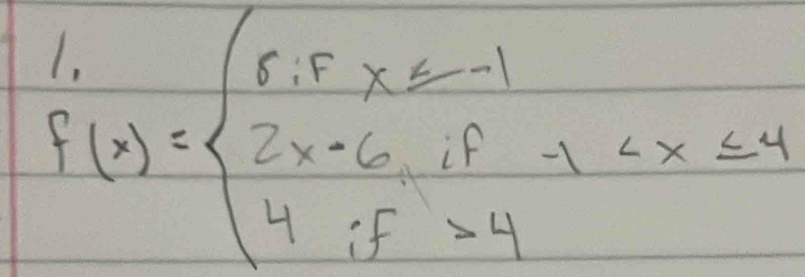 1.
f(x) = { 8 if x ≤ -1
2x - 6, if -1 < x ≤ 4
4 if > 4